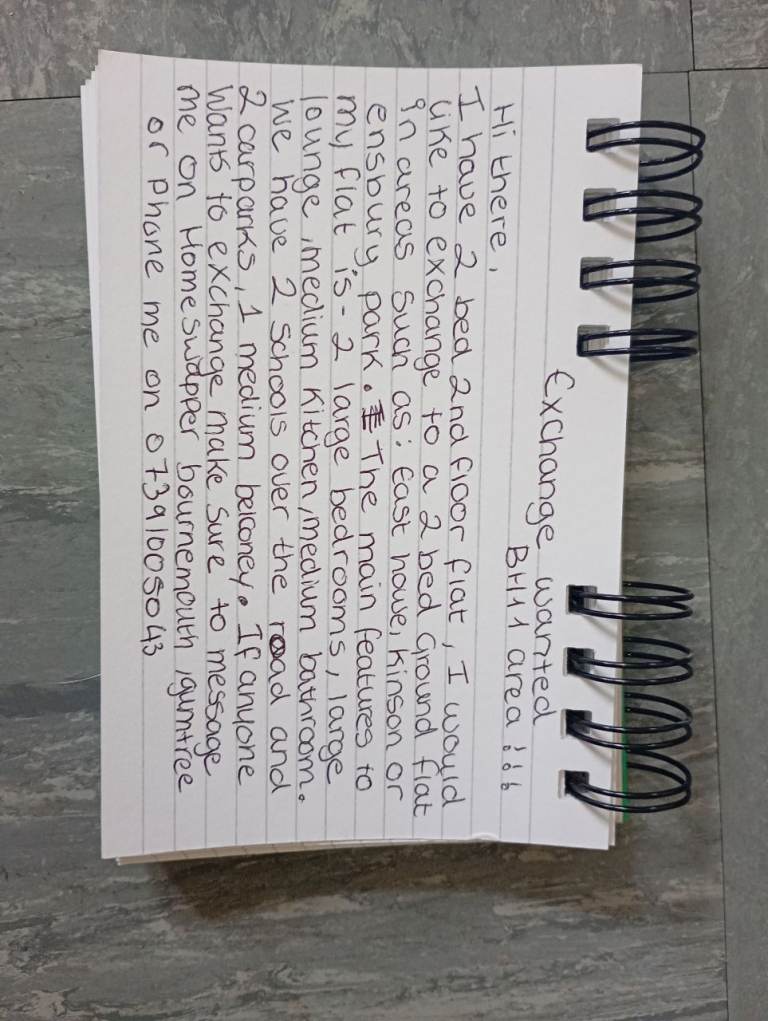 Exchange wanted
BH11 area!!!
Hi there,
I have 2 bed 2nd floor flat, I would
like to exchange to a 2 bed Ground flat
in areas such as: East howe, Kinson or
ensbury park. The main features to
my flat is - 2 large bedrooms, large
lounge, medium kitchen, medium bathroom.
We have 2 schools over the road and
2 carparks, 1 medium belconey. If anyone
wants to exchange make sure to message
me on Homeswapper bournemouth, gumtree
or phone me on 07391005043